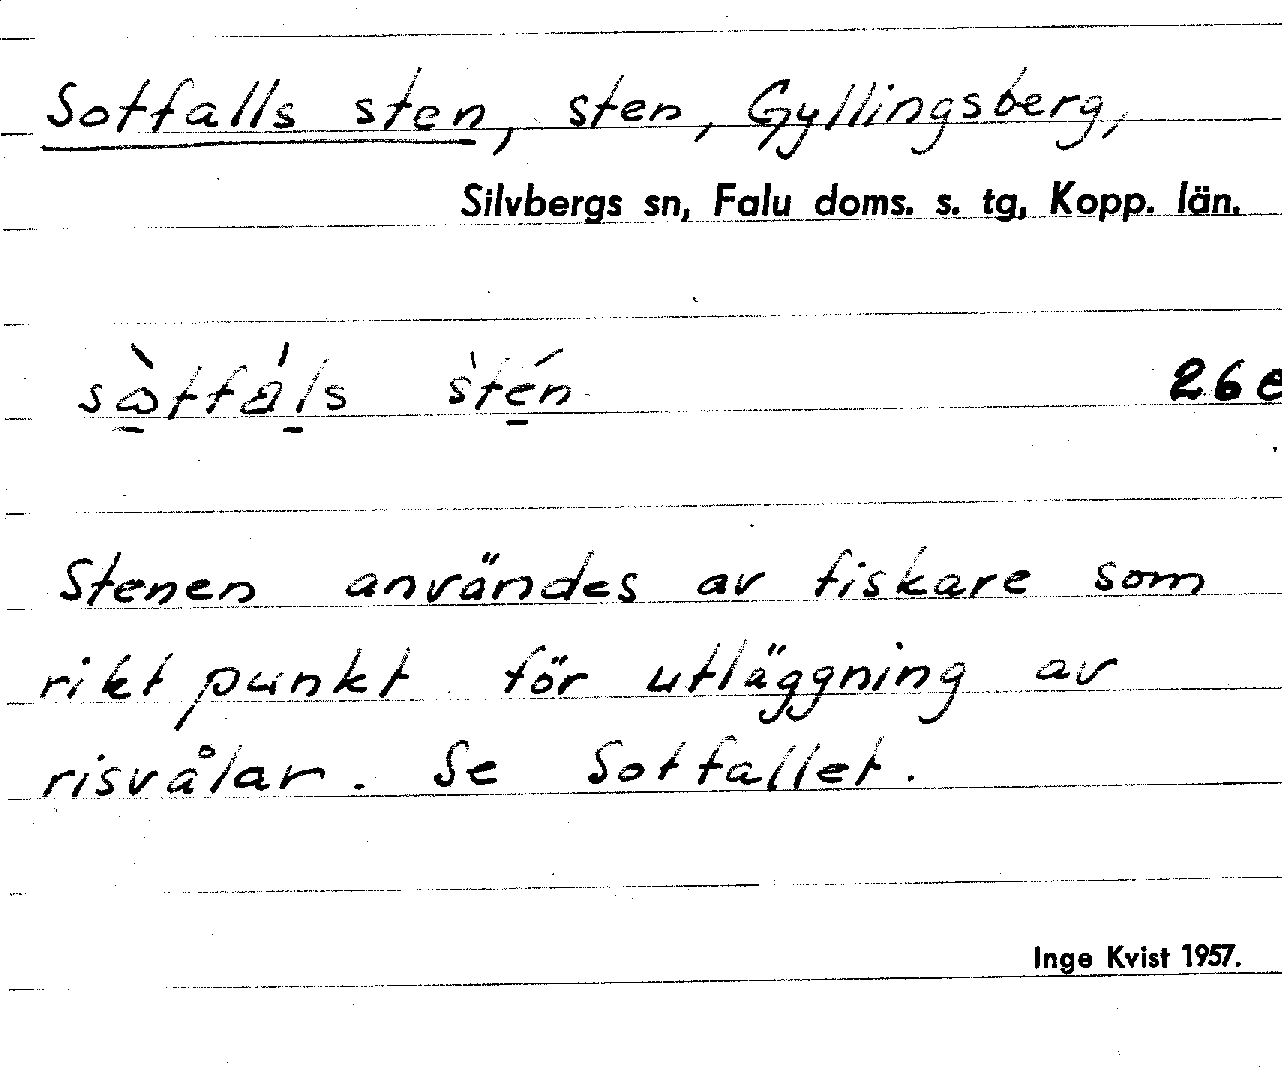 Sotfalls sten, sten, Gyllingsberg,
Silvbergs sn, Falu doms. s. tg, Kopp. län.
26e
Stenen användes av fiskare som
riktpunkt för utläggning av
risvålar. Se Sotfallet.
Inge Kvist 1957.